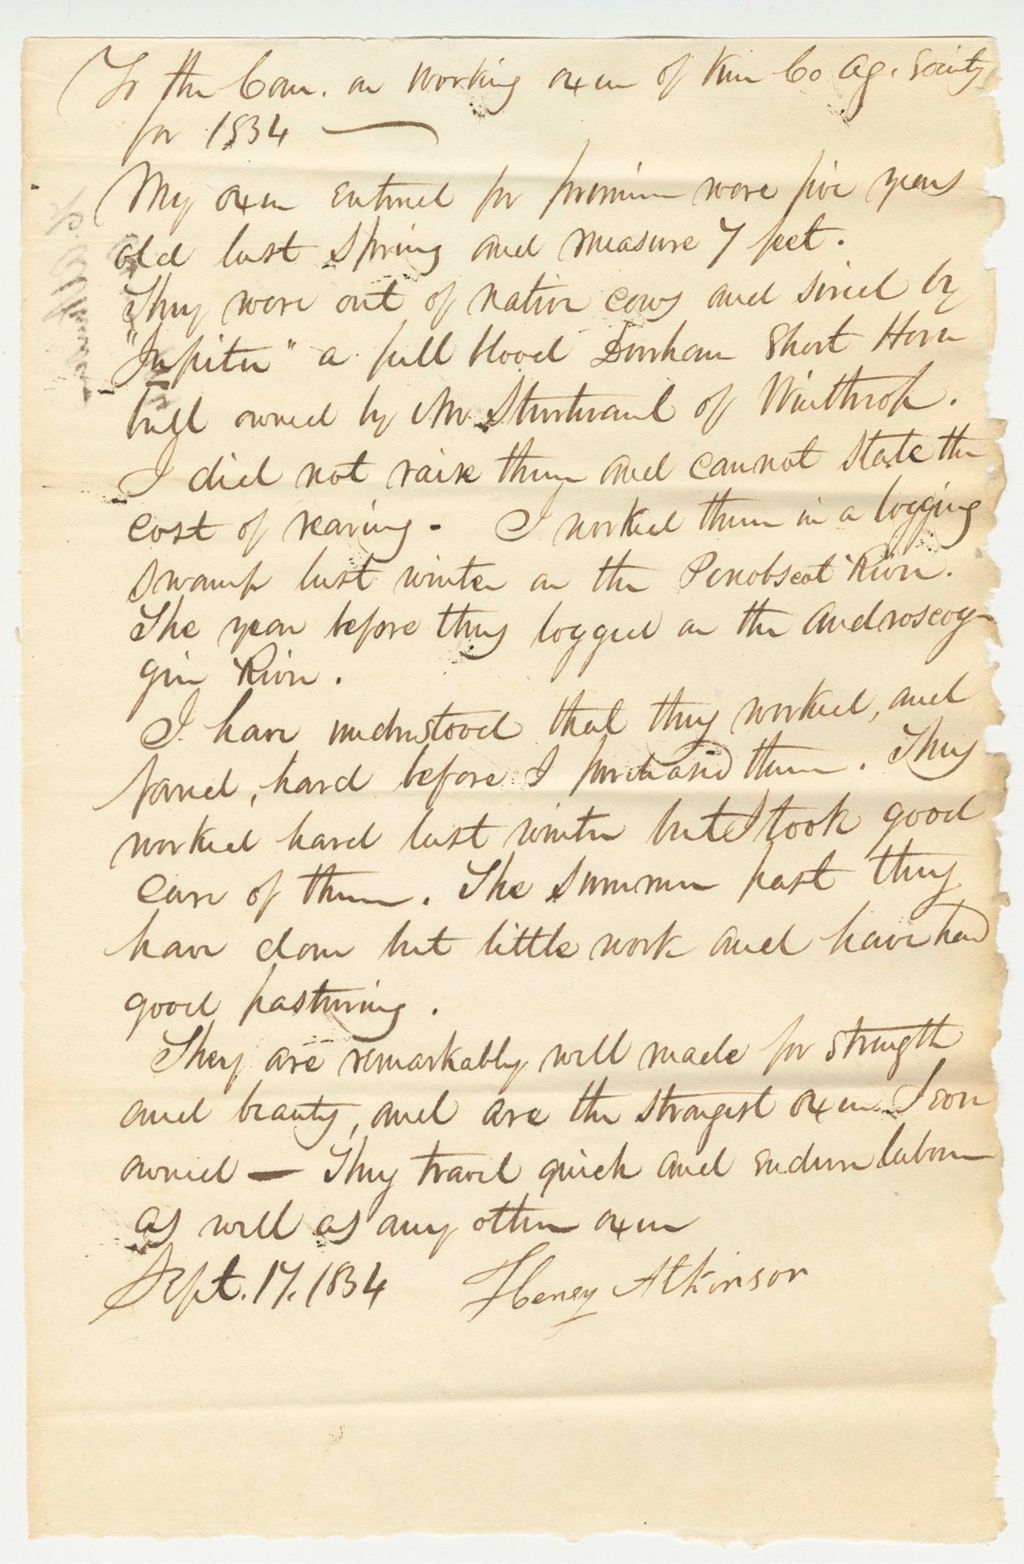 To the Com. on Working oxen of Ken Co Ag. Society
for 1834
My oxen entered for premium were five years
old last Spring and measure 7 feet.
They were out of native cows and sired by
"Jupiter" a full blood Durham Short Horn
bull owned by Mr Sturtevant of Winthrop.
I did not raise them and cannot state the
cost of rearing. I worked them in a logging
swamp last winter on the Penobscot River.
The year before they logged on the Androscog-
gin River.
I have understood that they worked, and
fared, hard before I purchased them. They
worked hard last winter but I took good
care of them. The Summer past they
have done but little work and have had
good pasturing.
They are remarkably well made for strength
and beauty, and are the strongest oxen I ever
owned — They travel quick and endure labour
as well as any other oxen
Sept. 17. 1834 Henry Atkinson